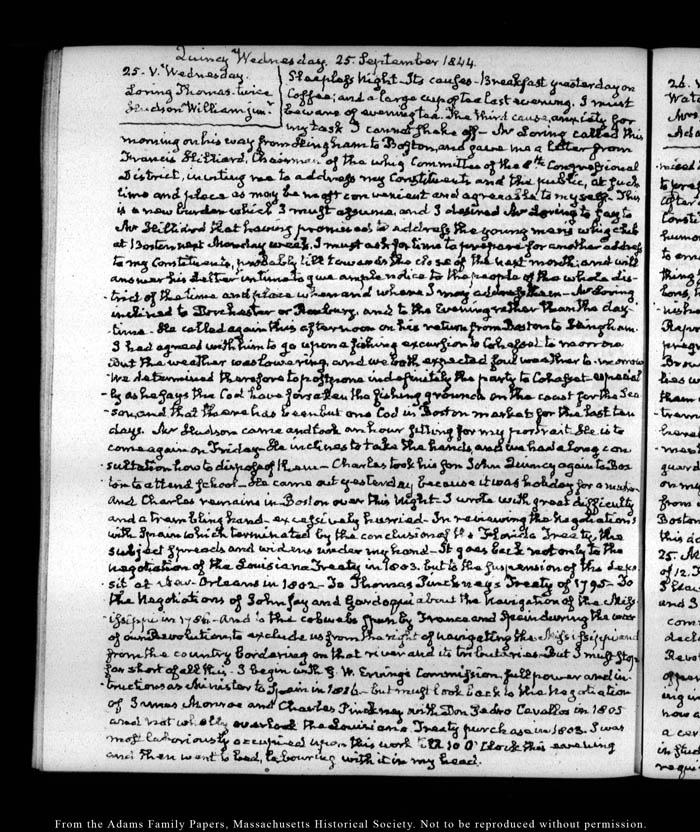 Quincy Wednesday. 25. September 1844.
25. V. Wednesday.
Loring Thomas. twice
Hudson William junr.
Sleepless Night. Its causes. Breakfast yesterday on
Coffee; and a large cup of tea last evening. I must
beware of evening tea. The third cause, anxiety for
my task I cannot shake off. Mr Loring called this
morning on his way from Hingham to Boston, and gave me a letter from
Francis Hilliard, Chairman of the whig Committee of the 8th Congressional
District, inviting me to address my Constituents and the public, at such
time and place as may be most convenient and agreeable to myself. This
is a new burden which I must assume, and I desired Mr Loring to say to
Mr Hilliard that having promised to address the young mens whig club
at Boston next Monday week, I must ask for time to prepare for another address
to my Constituents, probably till towards the close of the next month, and will
answer his Letter in time to give ample notice to the people of the whole dis-
trict of the time and place when and where I may address them. Mr Loring
inclined to Dorchester or Roxbury, and to the Evening rather than the day-
time. He called again this afternoon on his return from Boston to Hingham.
I had agreed with him to go upon a fishing excursion to Cohasset to morrow
But the weather was lowering and we both expected foul weather to-morrow
We determined therefore to postpone indefinitely the party to Cohasset especial
ly as he says the Cod have forsaken the fishing grounds on the coast for the Sea-
son, and that there has been but one Cod in Boston market for the last ten
days. Mr Hudson came and took an hour sitting for my portrait. He is to
come again on Friday. He inclines to take the hands, and we had a long con
sultation how to dispose of them. Charles took his son John Quincy again to Bos
ton to attend school. He came out yesterday because it was holiday for a muster
and Charles remains in Boston over this Night. I wrote with great difficulty
and a trembling hand. excessively hurried. In reviewing the Negotiations
with Spain which terminated by the conclusion of the Florida Treaty, the
subject spreads and widens under my hand. It goes back not only to the
negotiation of the Louisiana Treaty in 1803. but to the suspension of the depo
sit at New-Orleans in 1802. To Thomas Pinckney's Treaty of 1795. To
the Negotiations of John Jay and Gardoqui about the Navigation of the Miss-
issippi in 1786. And to the cobwebs spun by France and Spain during the war
of our Revolution, to exclude us from the right of navigating the Mississippi and
from the country bordering on that river and its tributaries. But I must stop
far short of all this. I begin with G. W. Erving's Commission, full power and in-
structions as Minister to Spain in but must look back to the Negotiation
of James Monroe and Charles Pinckney with Don Pedro Cavallos in 1805
and not wholly overlook the Louisiana Treaty purchase in 1803. I was
most laboriously occupied upon this work till 10 O'Clock this evening
and then went to bed, labouring with it in my head.
From the Adams Family Papers, Massachusetts Historical Society. Not to be reproduced without permission.